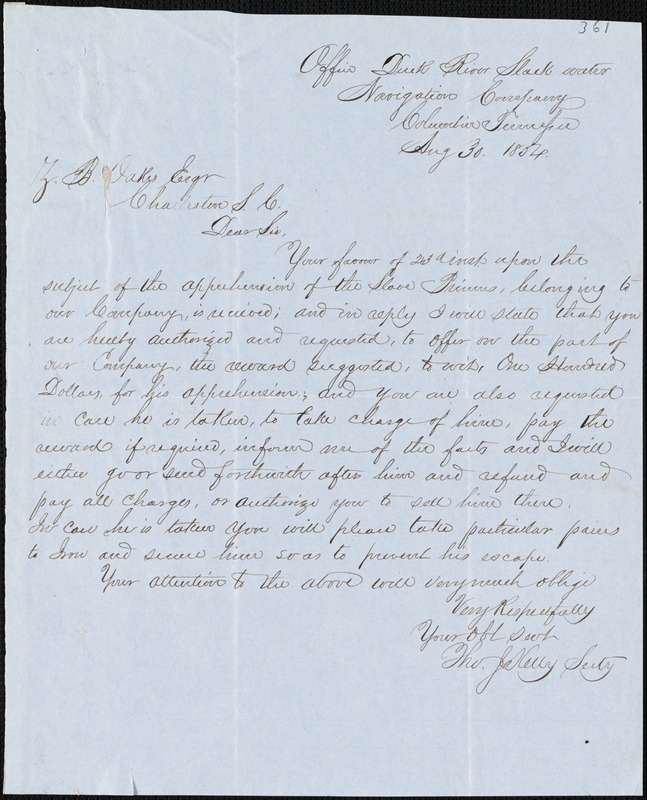 361
Office Duck River Slack water
Navigation Company
Columbia Tennessee
Aug 30. 1854.
Z. B. Oakes Esqr
Charleston S. C.
Dear Sir,
Your favour of 23d inst upon the
subject of the apprehension of the Slave Primus, belonging to
our Company, is received; and in reply I will state that you
are hereby authorized and requested, to offer on the part of
our Company, the reward suggested, to wit, One Hundred
Dollars, for his apprehension; and you are also requested
in case he is taken, to take charge of him, pay the
reward if required, inform me of the facts and I will
either go or send forthwith after him and refund and
pay all charges, or authorize you to sell him there.
In case he is taken you will please take particular pains
to Iron and secure him so as to prevent his escape.
Your attention to the above will very much oblige
Very Respectfully
Your Obt Servt
Tho. J Kelly Secty